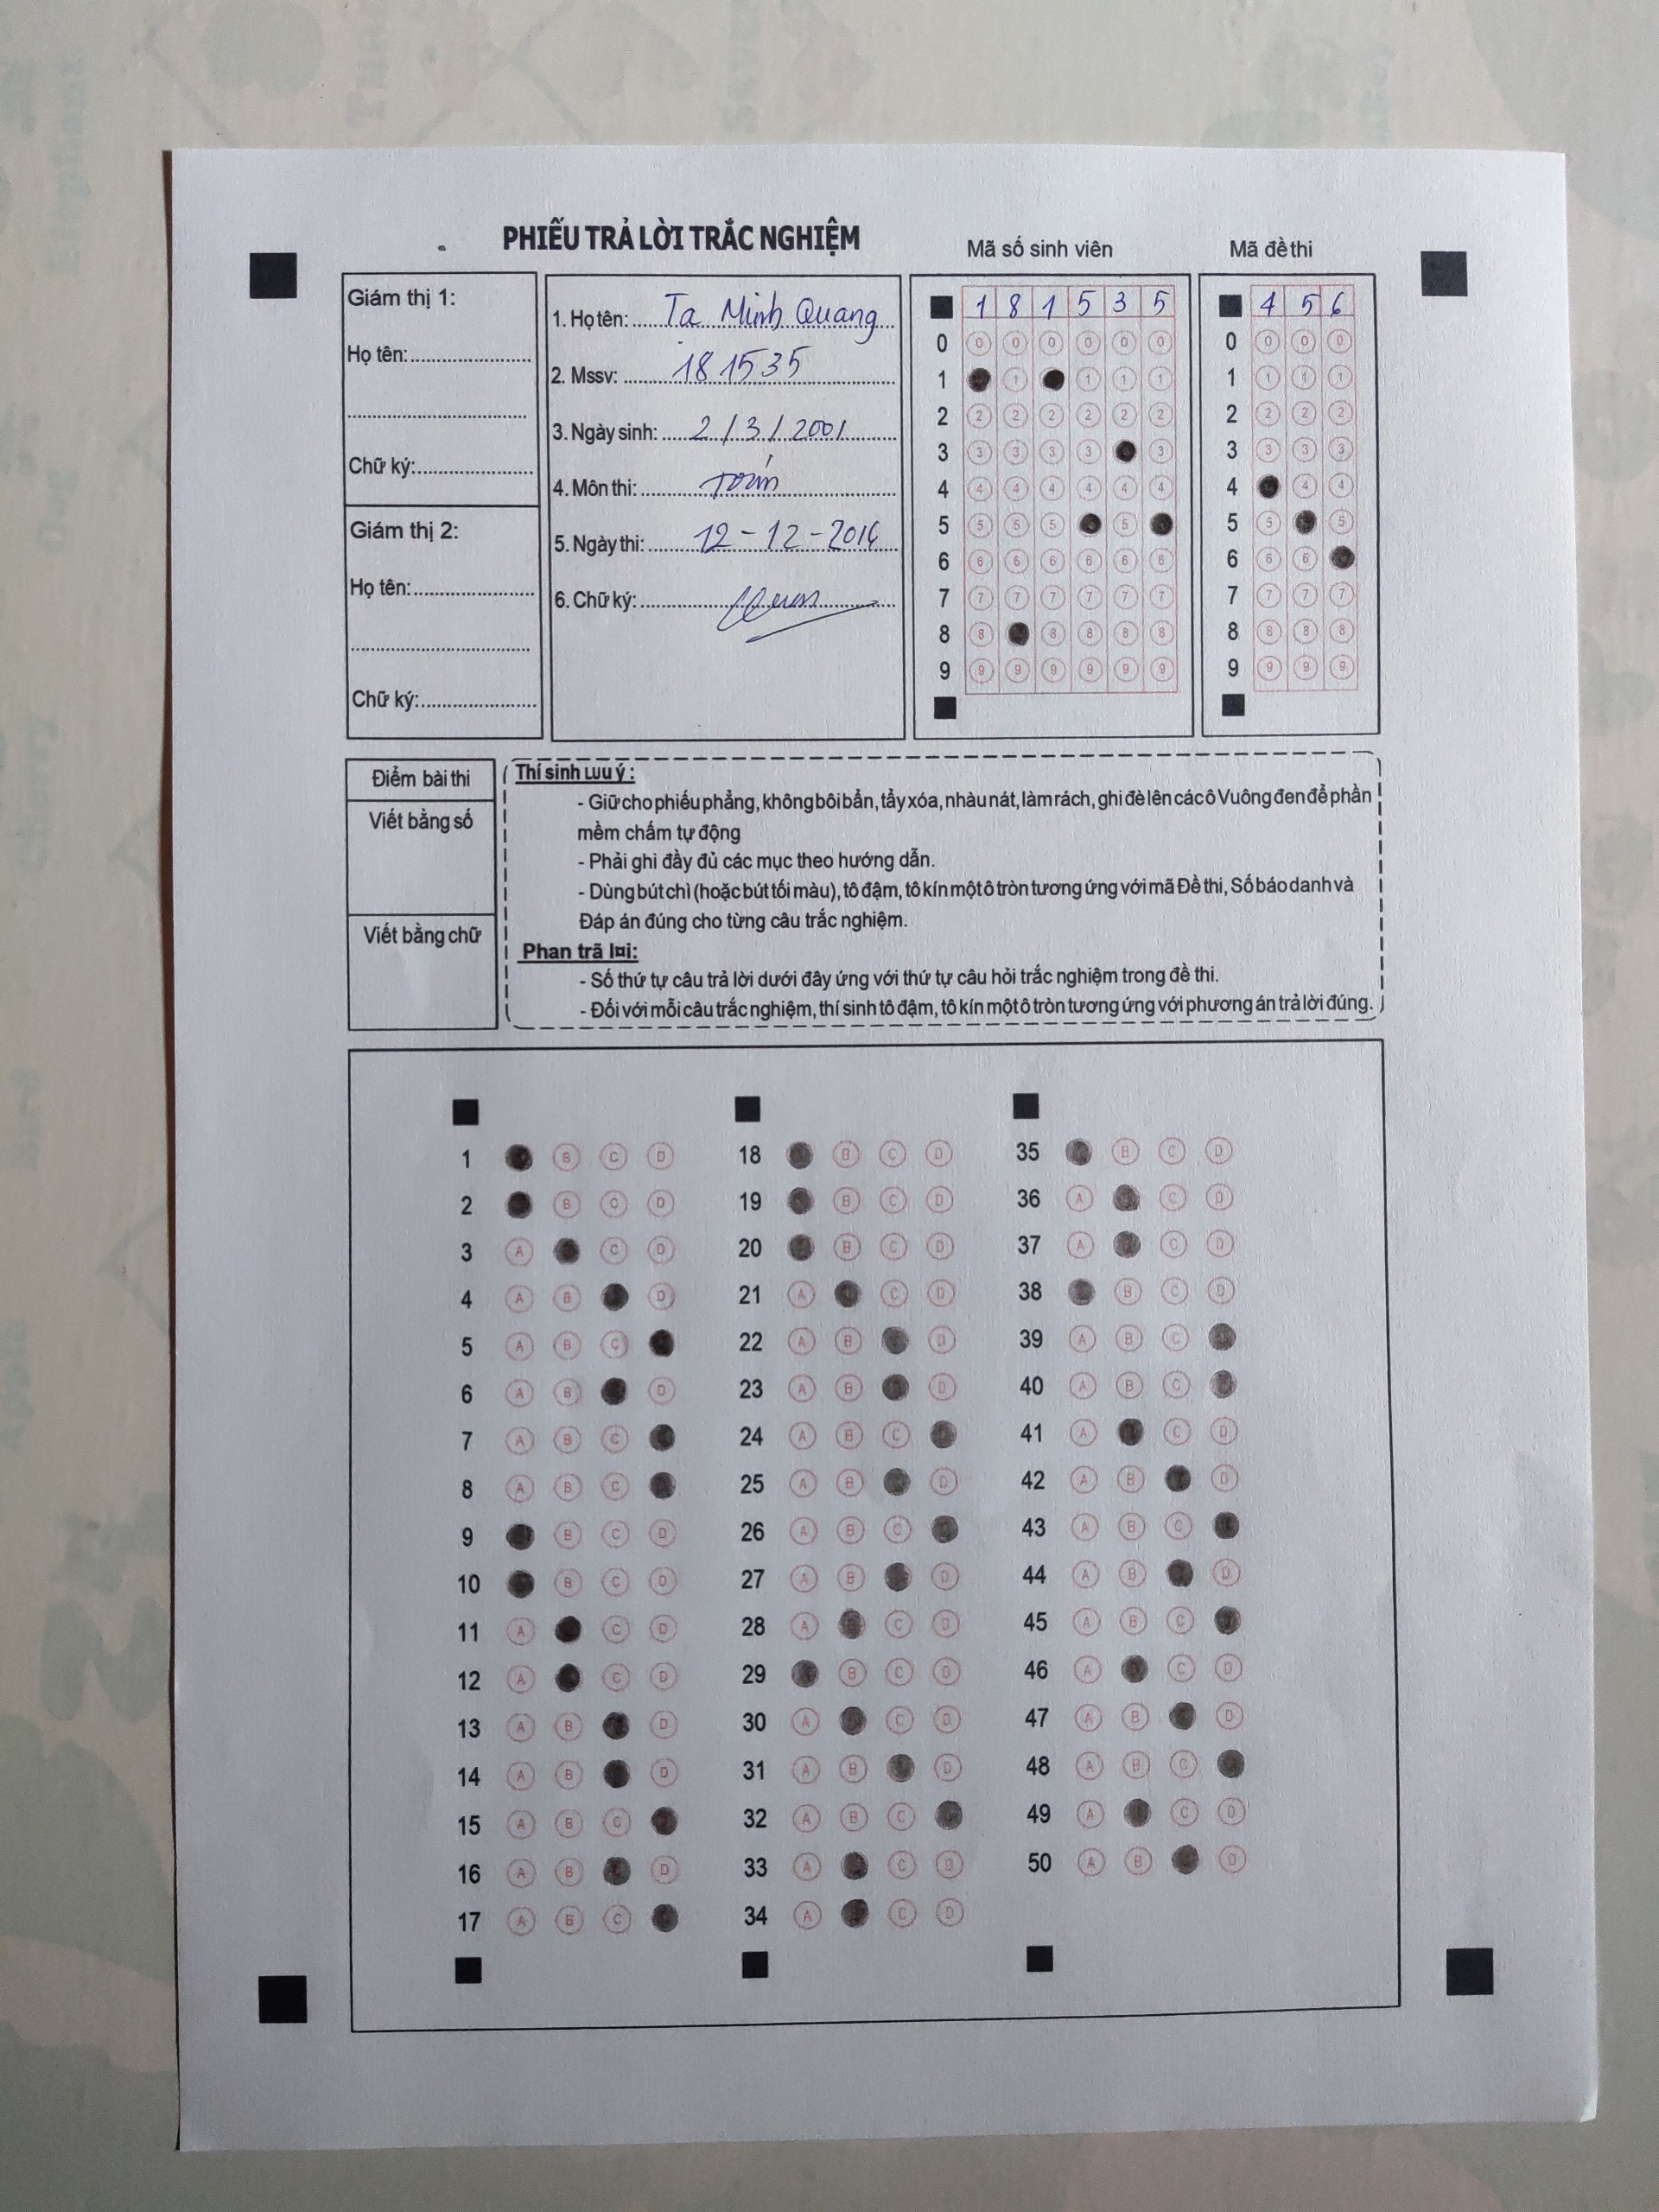 PHIẾU TRẢ LỜI TRẮC NGHIỆM
Mã số sinh viên
Mã đề thi
Giám thị 1:
Họ tên:
Chữ ký:
Giám thị 2:
Họ tên:
Chữ ký:
1. Họ tên: Tạ Minh Quang
2. Mssv: 181535
3. Ngày sinh: 2/3/2001
4. Môn thi: Toán
5. Ngày thi: 12-12-2016
6. Chữ ký:
1 8 1 5 3 5
0 0 0 0 0 0 0
1 1 1 1 1
2 2 2 2 2 2 2
3 3 3 3 3 3
4 4 4 4 4 4 4
5 5 5 5 5
6 6 6 6 6 6 6
7 7 7 7 7 7 7
8 8 8 8 8 8
9 9 9 9 9 9 9
4 5 6
0 0 0 0
1 1 1 1
2 2 2 2
3 3 3 3
4 4 4
5 5 5
6 6 6
7 7 7 7
8 8 8 8
9 9 9 9
Điểm bài thi
Viết bằng số
Viết bằng chữ
Thí sinh Lưu ý :
- Giữ cho phiếu phẳng, không bôi bẩn, tẩy xóa, nhàu nát, làm rách, ghi đè lên các ô Vuông đen để phần
mềm chấm tự động
- Phải ghi đầy đủ các mục theo hướng dẫn.
- Dùng bút chì (hoặc bút tối màu), tô đậm, tô kín một ô tròn tương ứng với mã Đề thi, Số báo danh và
Đáp án đúng cho từng câu trắc nghiệm.
Phan trã l¤i:
- Số thứ tự câu trả lời dưới đây ứng với thứ tự câu hỏi trắc nghiệm trong đề thi.
- Đối với mỗi câu trắc nghiệm, thí sinh tô đậm, tô kín một ô tròn tương ứng với phương án trả lời đúng.
1 B C D
2 B C D
3 A C D
4 A B D
5 A B C
6 A B D
7 A B C
8 A B C
9 B C D
10 B C D
11 A C D
12 A C D
13 A B D
14 A B D
15 A B C
16 A B D
17 A B C
18 B C D
19 B C D
20 B C D
21 A C D
22 A B D
23 A B D
24 A B C
25 A B D
26 A B C
27 A B D
28 A C D
29 B C D
30 A C D
31 A B D
32 A B C
33 A C D
34 A C D
35 B C D
36 A C D
37 A C D
38 B C D
39 A B C
40 A B C
41 A C D
42 A B D
43 A B C
44 A B D
45 A B C
46 A C D
47 A B D
48 A B C
49 A C D
50 A B D